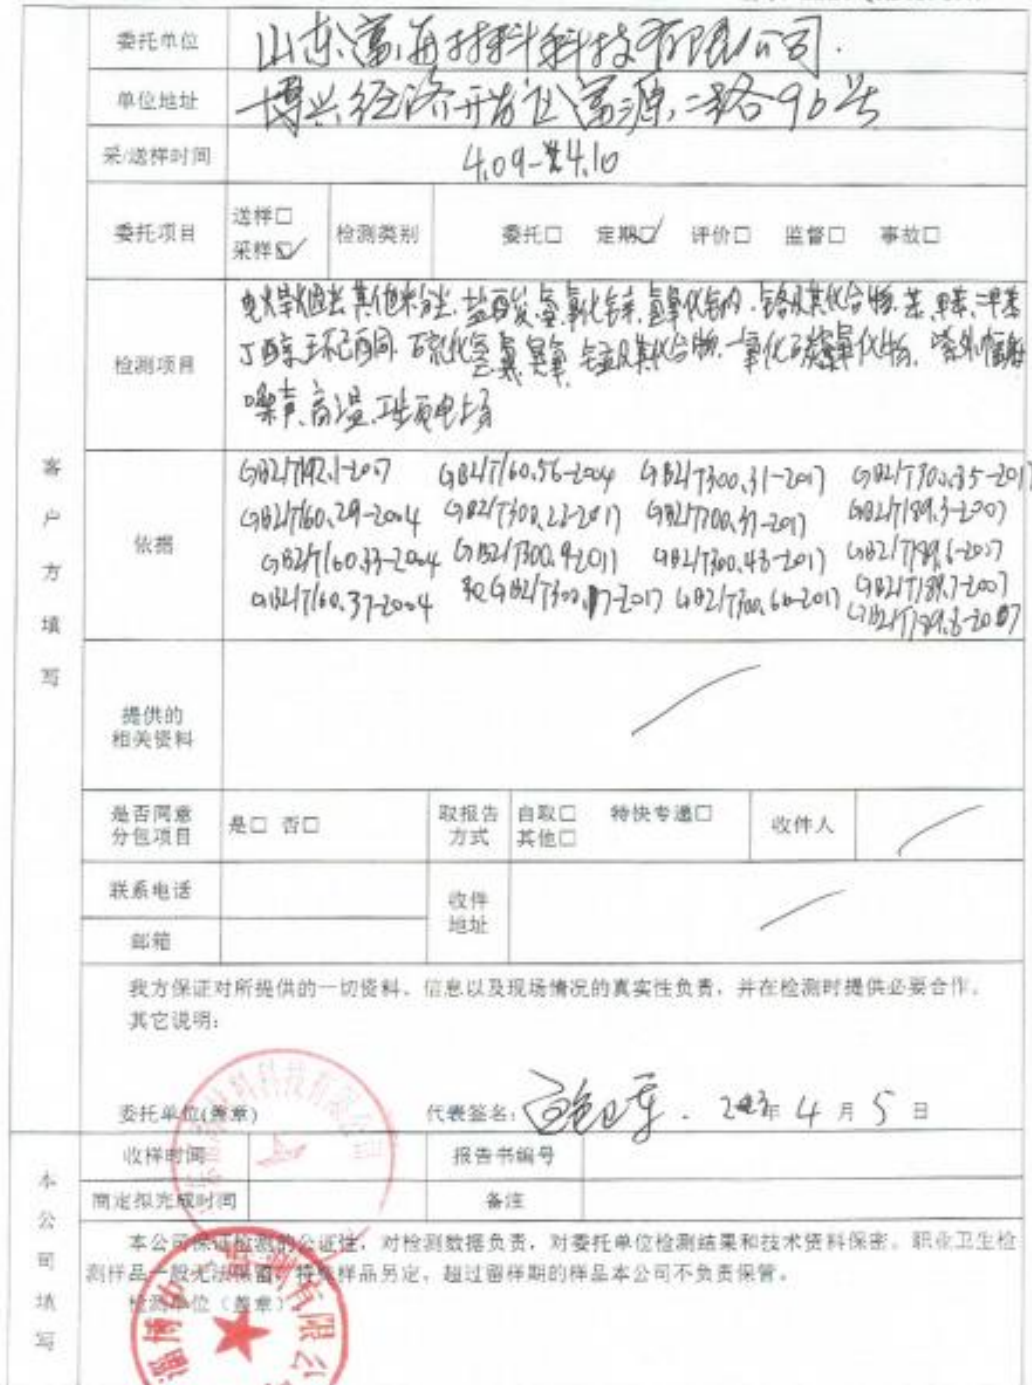 委托单位 山东富海材料科技有限公司.
单位地址 博兴经济开发区富源二路96号
采/送样时间 4.09-4.10
委托项目 送样□ 采样☑ 检测类别 委托□ 定期☑ 评价□ 监督□ 事故□
检测项目
电焊烟尘 其他粉尘. 盐酸 氢氧化钠. 铬及其化合物. 苯. 甲苯. 二甲苯
丁醇. 环己酮 硫化氢 氨 臭氧 锰及其化合物. 一氧化碳 氮氧化物.
噪声. 高温. 工频电场
客户方填写
依据
GBZ/T192.1-2007 GBZ/T160.56-2004 GBZ/T300.31-2017 GBZ/T300.35-2017
GBZ/T160.29-2004 GBZ/T300.22-2017 GBZ/T300.37-2017 GBZ/T189.3-2007
GBZ/T160.33-2004 GBZ/T300.9-2017 GBZ/T300.48-2017 GBZ/T189.6-2007
GBZ/T160.37-2004 GBZ/T300.17-2017 GBZ/T300.60-2017 GBZ/T189.7-2007
GBZ/T189.8-2007
提供的
相关资料
是否同意
分包项目
是□ 否□
取报告
方式
自取□ 特快专递□
其他□
收件人
联系电话
收件
地址
邮箱
我方保证对所提供的一切资料、信息以及现场情况的真实性负责，并在检测时提供必要合作。
其它说明：
委托单位(盖章) 代表签名： 2023年 4 月 5 日
收样时间 报告书编号
商定拟完成时间 备注
本公司填写
本公司保证检测的公证性，对检测数据负责，对委托单位检测结果和技术资料保密。职业卫生检
测样品一般无法保留，特殊样品另定，超过留样期的样品本公司不负责保管。
检测单位（盖章）